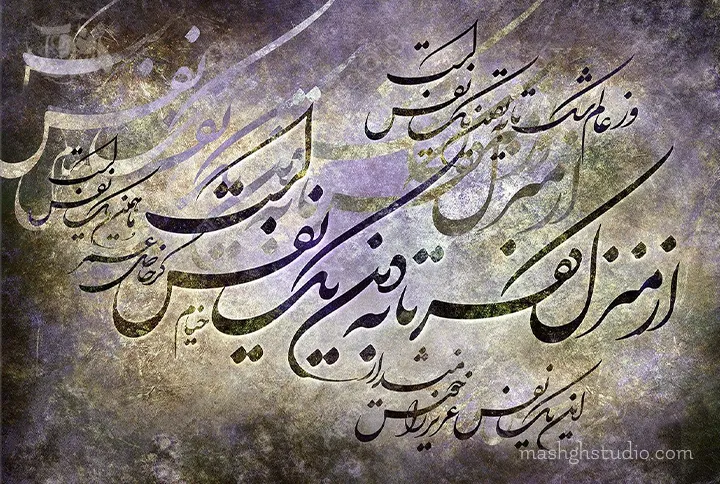 از منزل کفر تا به دین یک نفس است
وز عالم شک تا به یقین یک نفس است
این یک نفس عزیز را خوش میدار
کز حاصل عمر ما همین یک نفس است
خیام
mashghstudio.com